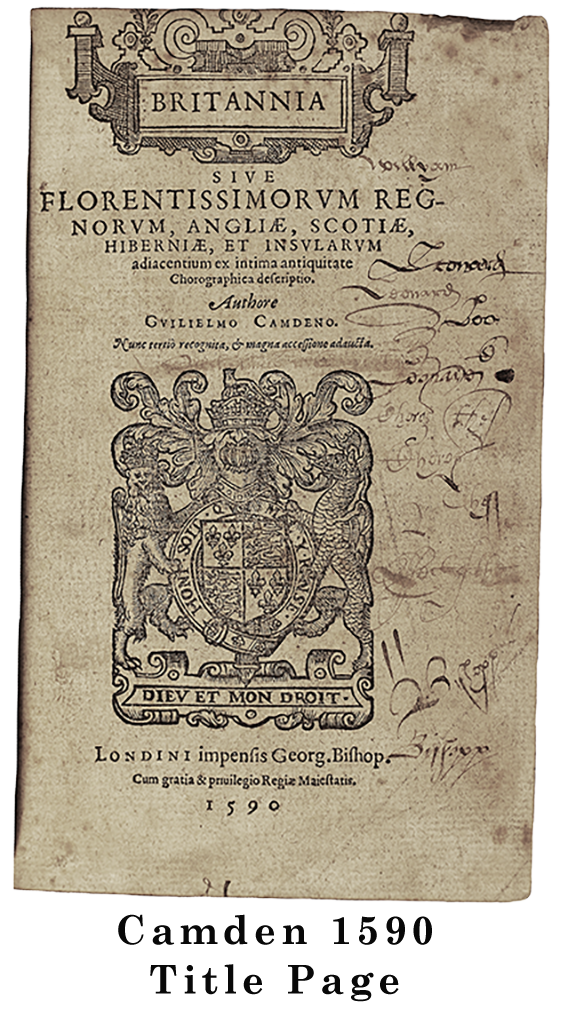 BRITANNIA
SIVE
FLORENTISSIMORVM REG-
NORVM, ANGLIÆ, SCOTIÆ,
HIBERNIÆ, ET INSVLARVM
adiacentium ex intima antiquitate
Chorographica deſcriptio.
Authore
GVILIELMO CAMDENO.
Nunc tertiò recognita, & magna acceſsione adaucta.
willyam
Leonard
Leonard
Leonard
HON SOIT Q MAL Y PENSE
DIEV ET MON DROIT.
LONDINI impenſis Georg. Biſhop.
Biſhopp
Cum gratia & priuilegio Regiæ Maieſtatis.
1590
Camden 1590
Title Page